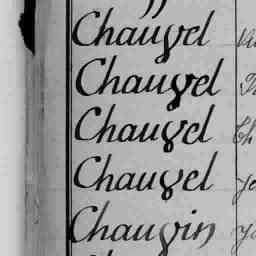 Chauvel
Chauvel
Chauvel
Chauvel
Chauvin